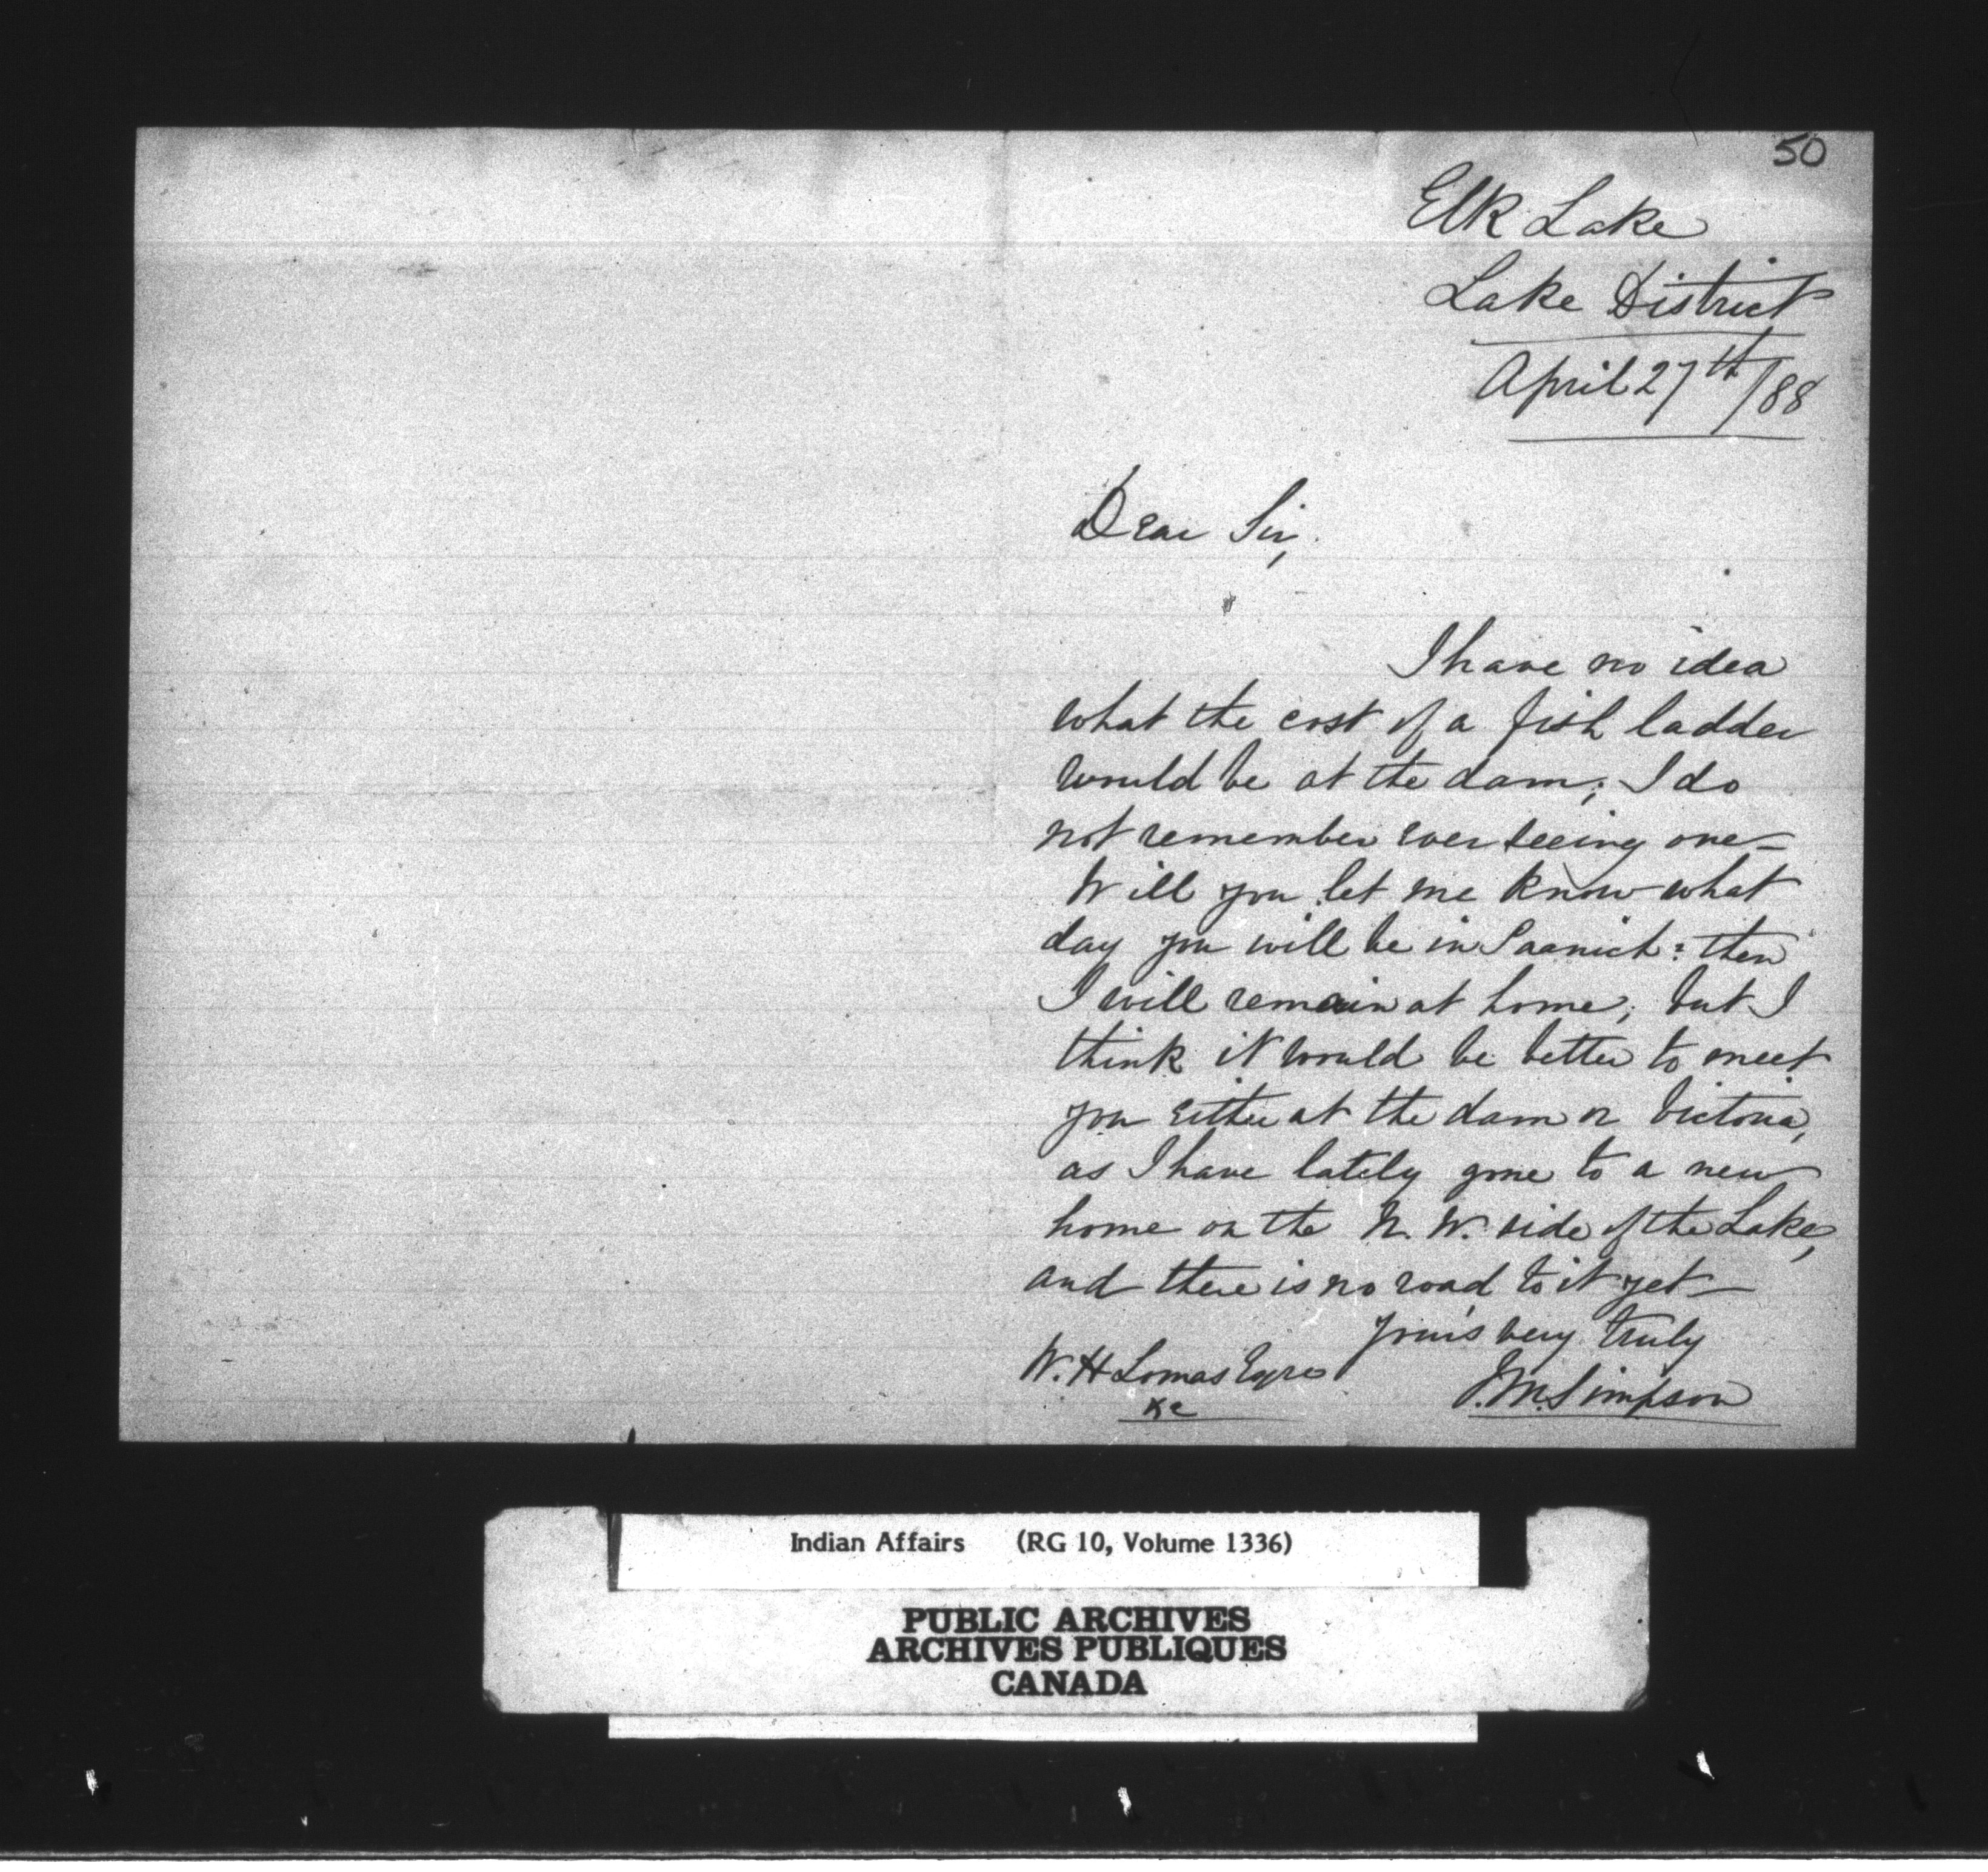 50
Elk Lake
Lake District
April 27th/88
Dear Sir,
I have no idea
what the cost of a fish ladder
would be at the dam; I do
not remember ever seeing one—
Will you let me know what
day you will be in Saanich: then
I will remain at home; but I
think it would be better to meet
you either at the dam or Victoria,
as I have lately gone to a new
home on the N. W. side of the Lake,
and there is no road to it yet—
Yours very truly
W. H Lomas Esqre
&c
J. M. Simpson
Indian Affairs (RG 10, Volume 1336)
PUBLIC ARCHIVES
ARCHIVES PUBLIQUES
CANADA